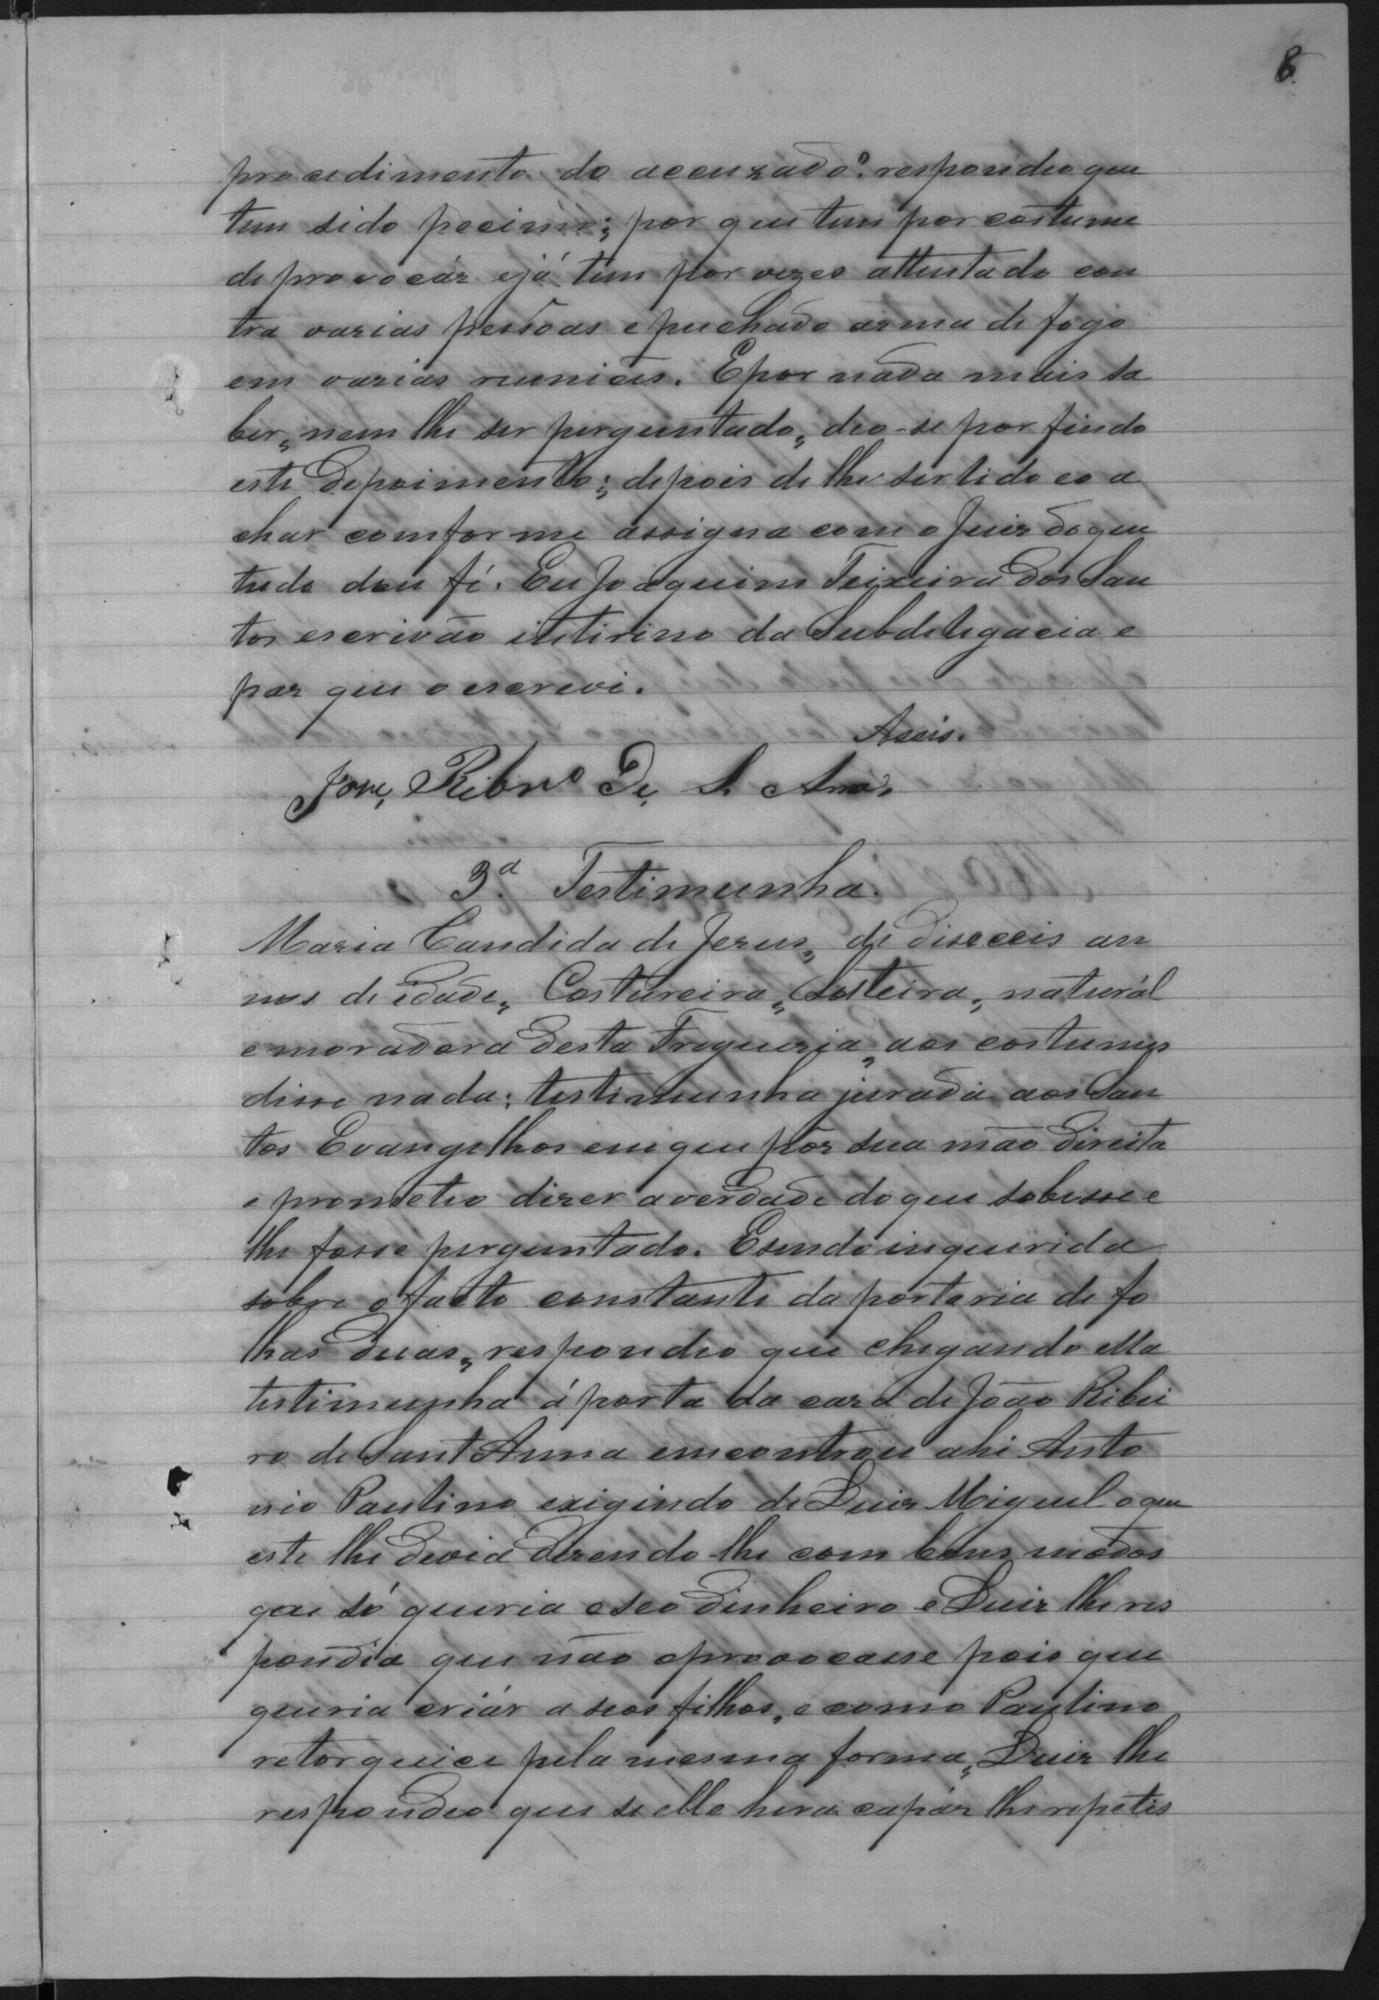 8
procedimento do accuzado? respondeo que
tem sido pecimo; por que tem por costume
de provocár e já tem por vezes attentado con
tra varias pessoas e puchado arma de fogo
em varias reuniões. E por nada mais sa
ber, nem lhe ser perguntado, deo-se por findo
este depoimento; depois de lhe ser lido e o a
char comforme assigna com o Juiz do que
tudo dou fé. Eu Joaquim Teixeira dos San
tos escrivão intirino da Subdelegacia e
par que o escrevi.
Assis.
Jose, Ribrº De, S. Anna
3.ª Testimunha.
Maria Candida de Jezus, de diseceis an
nos de idade, Costureira, Solteira, naturál
e moradora desta Freguezia, aos costumes
disse nada; testimunha jurada aos San
tos Evangelhos em que pôz sua mão direita
e prometeo dizer a verdade do que sobesse e
lhe fosse perguntado. E sendo inquerida
sobre o facto constante da portaria de fo
lhas duas, respondeo que chegando ella
testimunha á porta da caza de João Ribei
ro de Sant Anna emcontrou ahi Anto
nio Paulino exigindo de Luiz Miguel o que
este lhe devia dizendo-lhe com bons modos
que só queria o seo dinheiro e Luiz lhe res
pondia que não o provocasse pois que
queria criár a seos filhos, e como Paulino
retorquice pela mesma forma, Luiz lhe
respondeo que se elle hera capáz lhe repetis